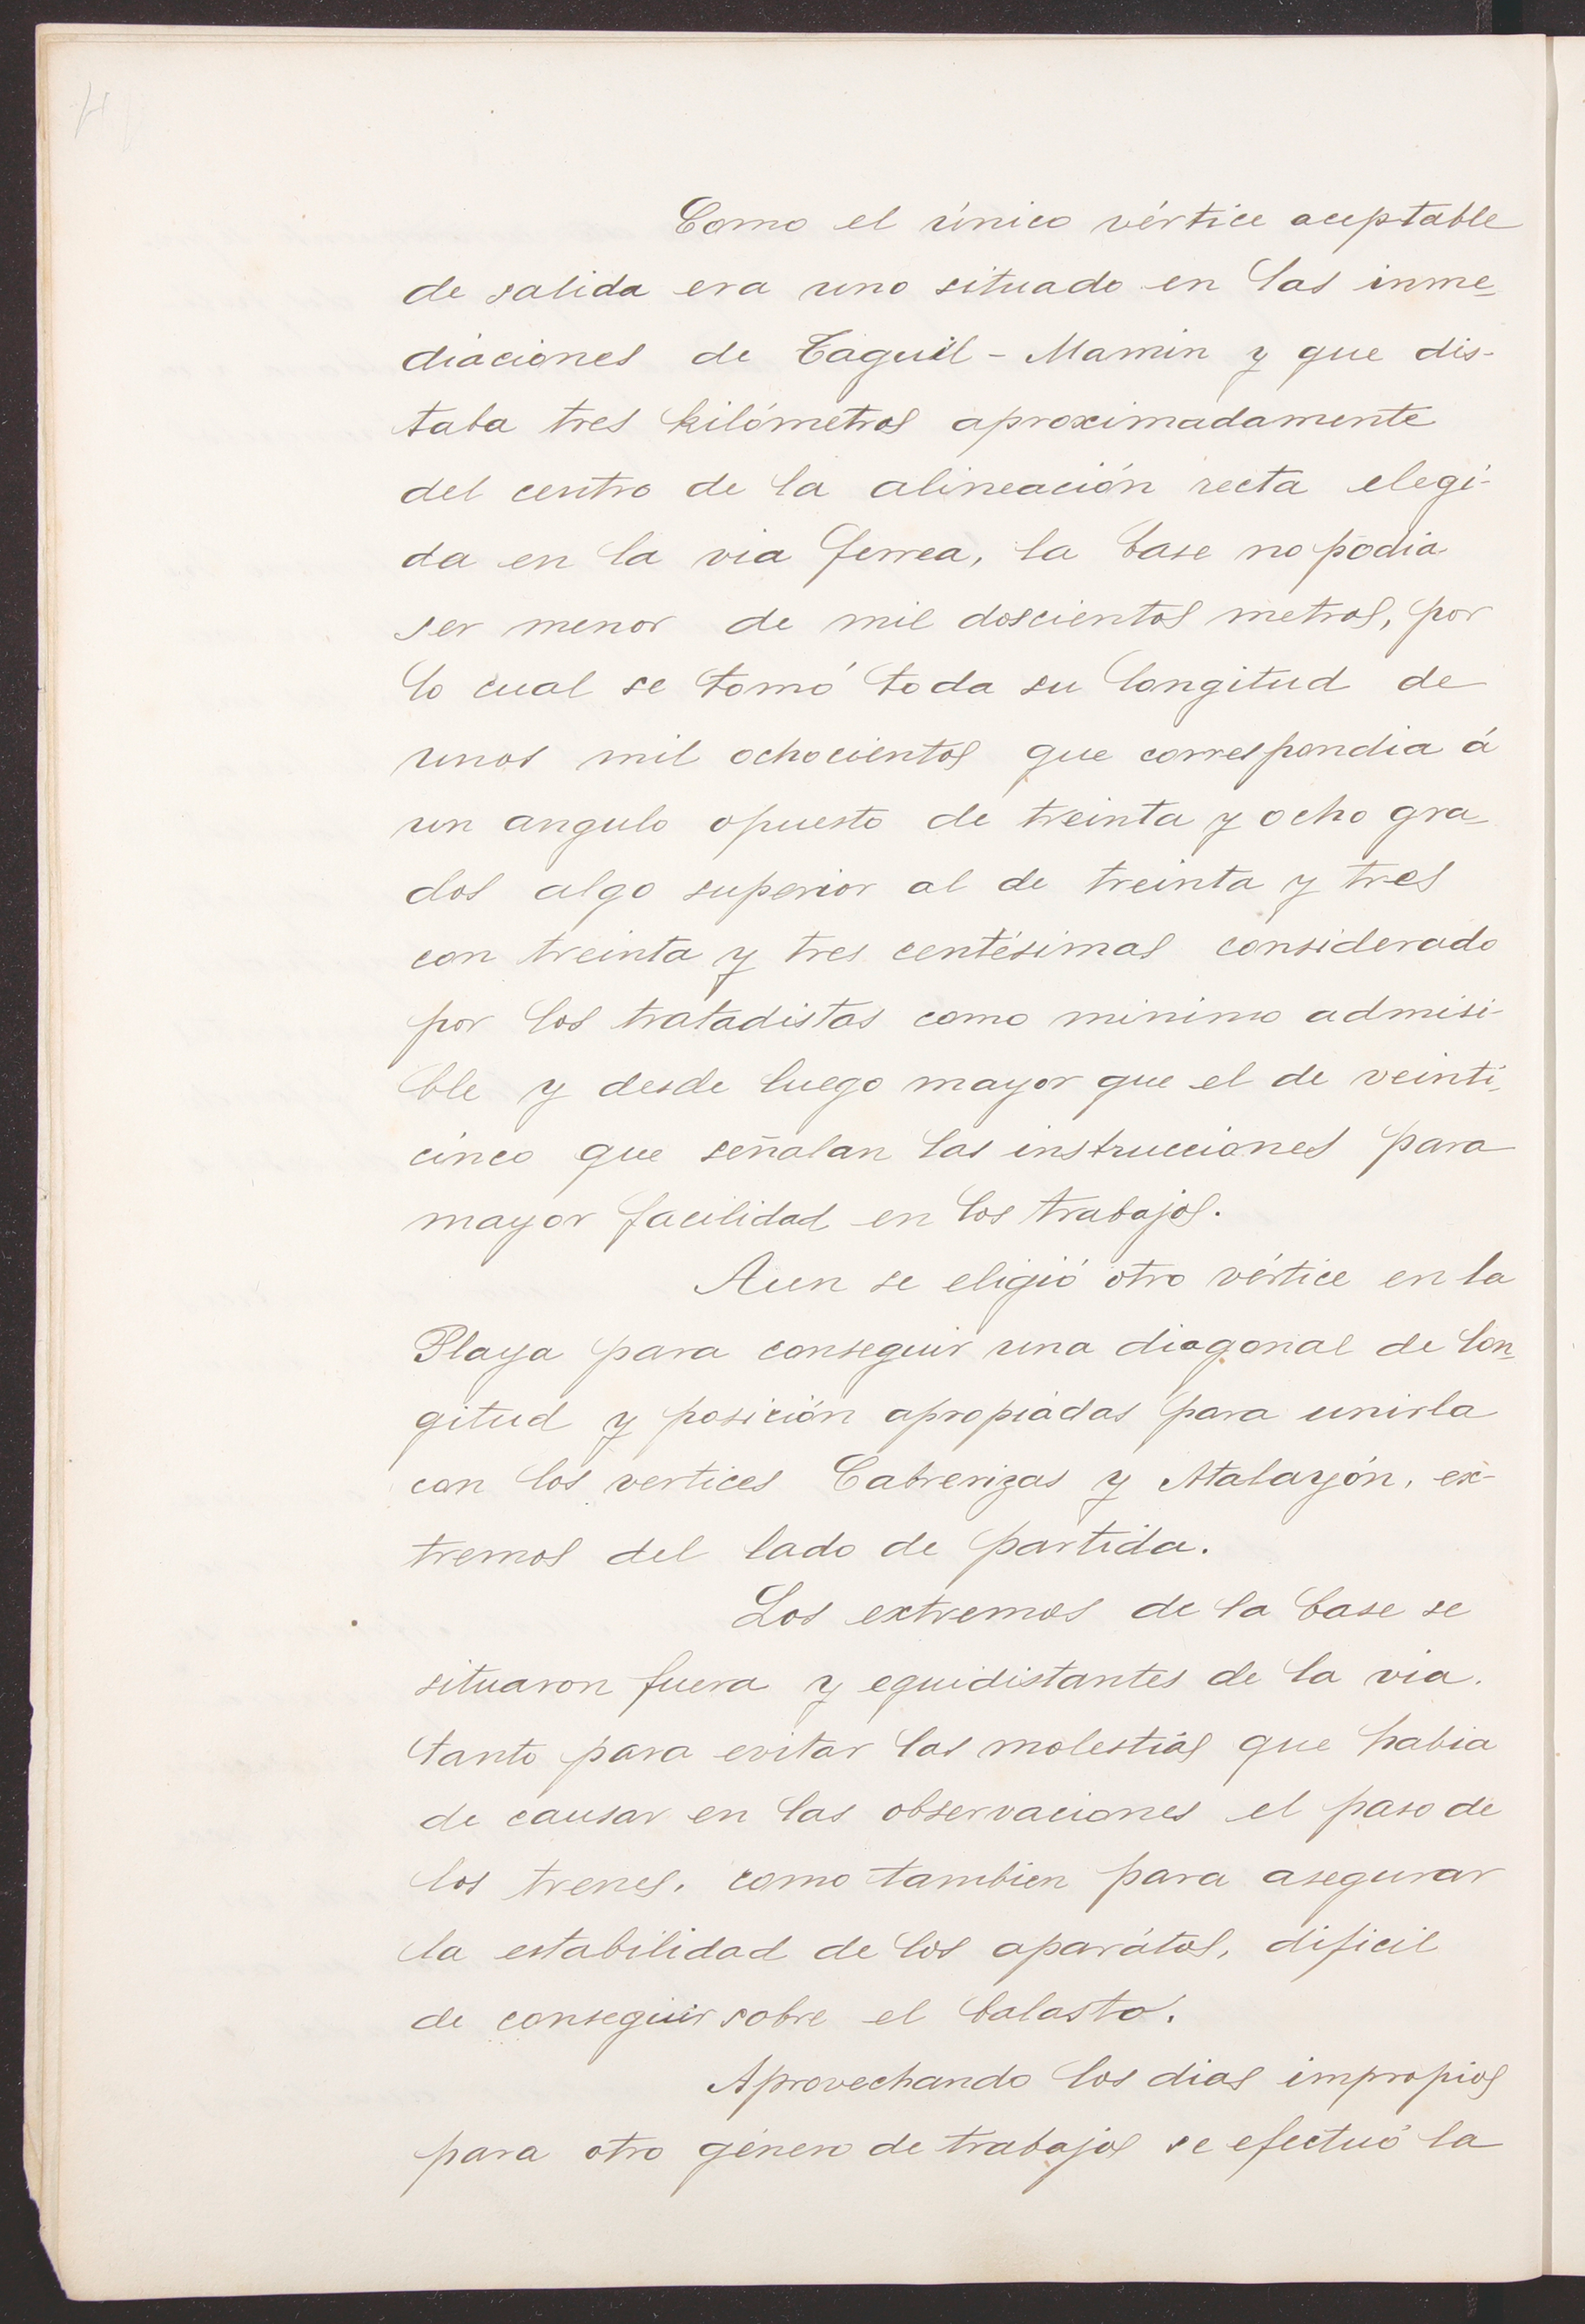 Como el único vértice aceptable
de salida era uno situado en las inme-
diaciones de Taguil-Mamin y que dis-
taba tres kilómetros aproximadamente
del centro de la alineación recta elegi-
da en la via ferrea, la base no podia
ser menor de mil doscientos metros, por
lo cual se tomó toda su longitud de
unos mil ochocientos que correspondia á
un angulo opuesto de treinta y ocho gra-
dos algo superior al de treinta y tres
con treinta y tres centésimas considerado
por los tratadistas como minimo admisi-
ble y desde luego mayor que el de veinti-
cinco que señalan las instrucciones para
mayor facilidad en los trabajos.
Aun se eligió otro vértice en la
Playa para conseguir una diagonal de lon-
gitud y posición apropiadas para unirla
con los vertices Cabrerizas y Atalayón, ex-
tremos del lado de partida.
Los extremos de la base se
situaron fuera y equidistantes de la via.
tanto para evitar las molestias que habia
de causar en las observaciones el paso de
los trenes, como tambien para asegurar
la estabilidad de los aparátos, dificil
de conseguir sobre el balasto.
Aprovechando los dias impropios
para otro género de trabajos se efectuó la